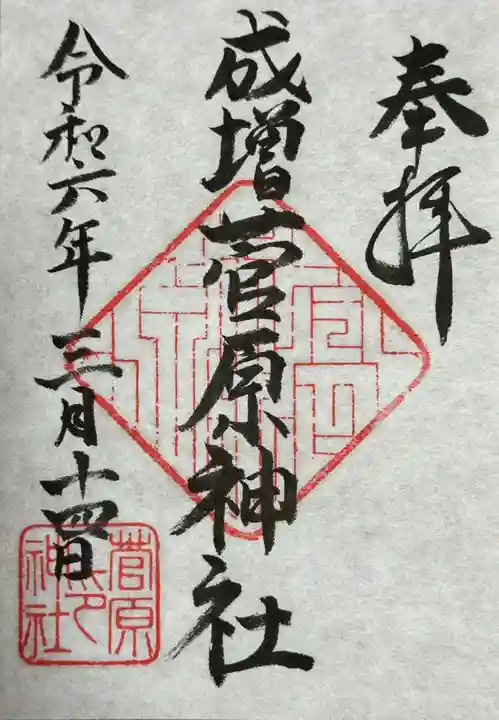 奉拝
成増菅原神社
令和六年三月十四日
菅原
神社